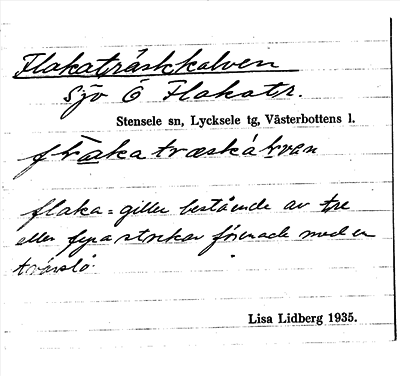 Flakaträskkalven
Sjö Ö Flakatr.
Stensele sn, Lycksele tg, Västerbottens l.
flakatræskákvan
flaka = giller bestående av tre
eller fyra stockar förenade med en
tvärslå.
Lisa Lidberg 1935.